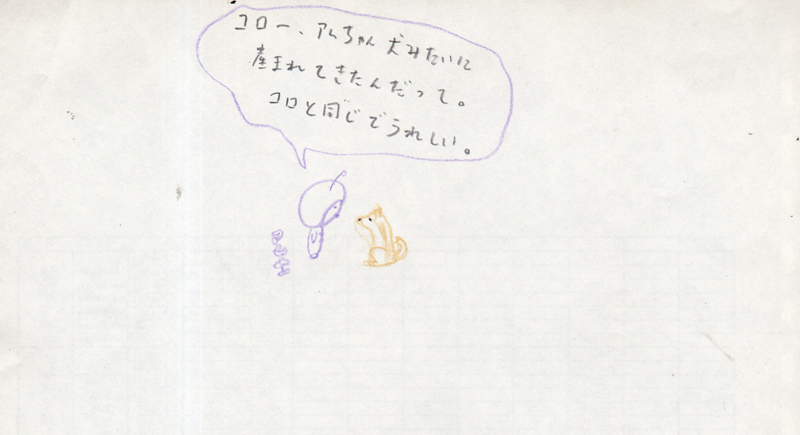 コロー、アムちゃん犬みたいに
産まれてきたんだって。
コロと同じでうれしい。